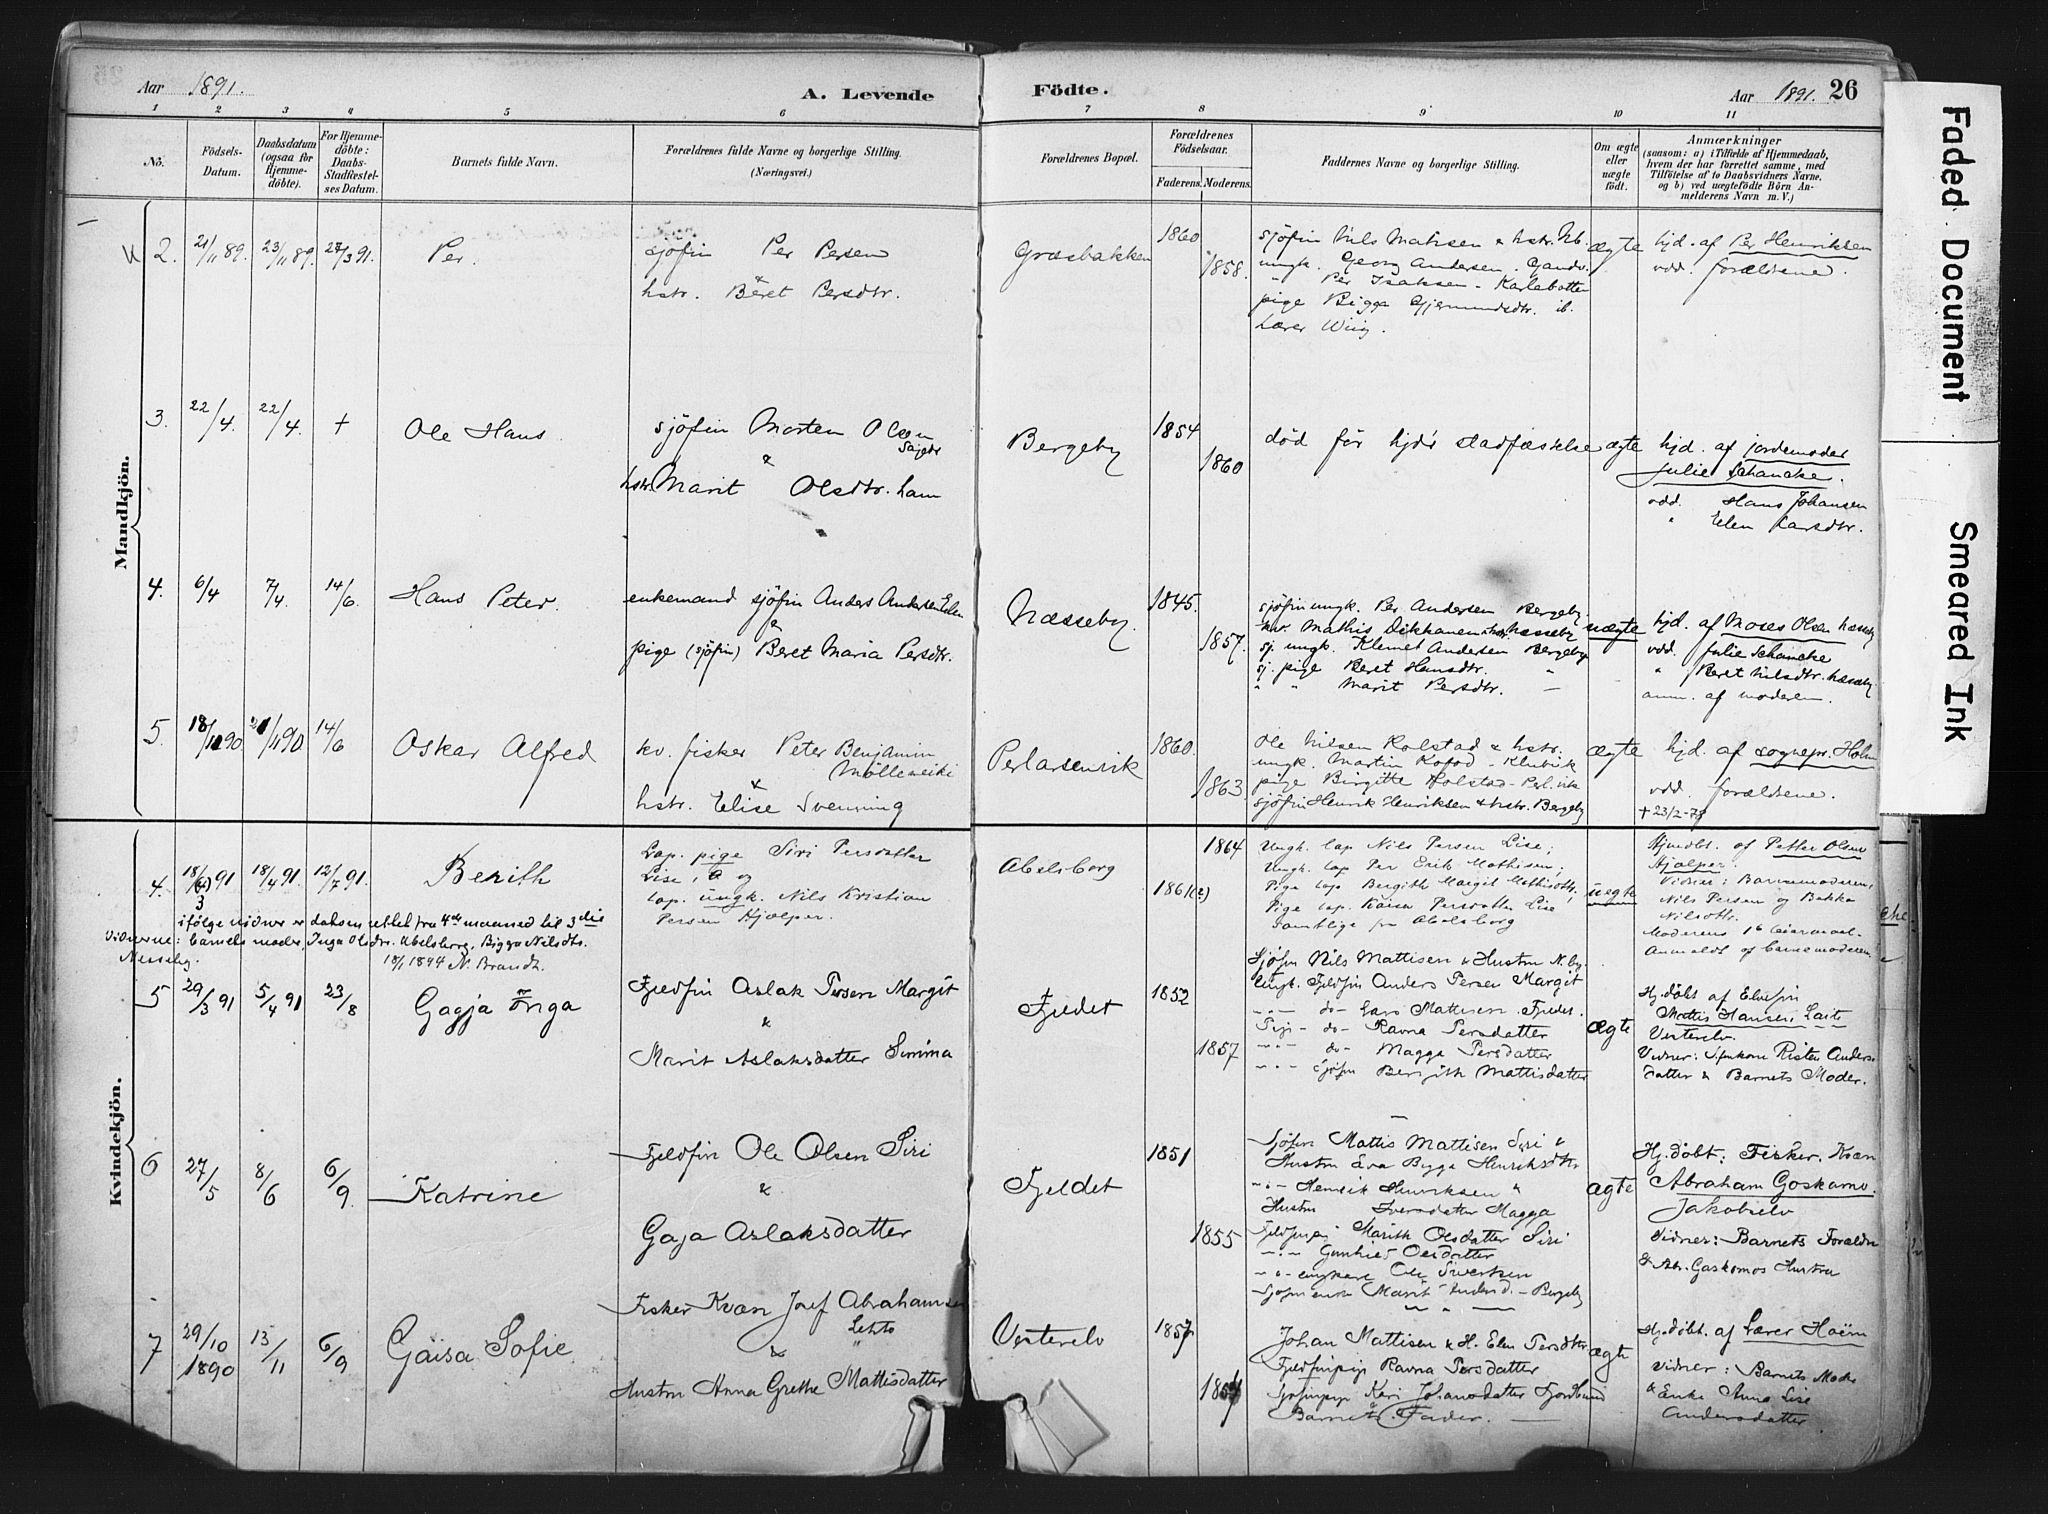 Aar 1891.
A. Levende
Födte.
Aar 1891. 26
1 2 3 4 5 6 7 8 9 10 11
No.
Födsels-Datum.
Daabsdatum (ogsaa for Hjemme-döbte).
For Hjemme-döbte: Daabs-Stadfæstel-ses Datum.
Barnets fulde Navn.
Forældrenes fulde Navne og borgerlige Stilling.
(Næringsvei.)
Forældrenes Bopæl.
Forældrenes Födselsaar.
Faderens. Moderens.
Faddernes Navne og borgerlige Stilling.
Om ægte eller uægte födt.
Anmærkninger
(saasom: a) i Tilfælde af Hjemmedaab,
hvem der har forrettet samme, med
Tilföielse af to Daabsvidners Navne,
og b) ved uægtefödte Börn An-
melderens Navn m. V.)
Mandkjön.
2. 21/11 89. 23/11 89. 27/3 91. Per.
sjöfin Per Persen
&
hstr. Beret Persdtr.
Græsbakken
1860
1858.
sjöfin Nils Mathsen & hstr. Nb.
ungk. Georg Andersen. Gandv.
" Per Isaksen - Karlebotten
pige Bigga Gjermundsdtr. ib.
Lærer Wiig.
ægte
hjd. af Per Henriksen
vdd. forældrene.
3. 22/4. 22/4. + Ole Hans
sjöfin Morten Olsen
&
hstr. Marit Olsdtr.
Bergeby
1854
1860
död för hjd's stadfæstelse
ægte
hjd. af jordemoder
Julie Schancke.
vdd. Hans Johansen
" Elen Larsdtr.
4. 6/4 7/4. 14/6. Hans Peter.
enkemand sjöfin Anders Andersen
&
pige (sjöfin) Beret Maria Persdtr.
Næsseby
1845.
1857.
sjöfin ungk. Per Andersen Bergeby.
kv. Mathis Dikkanen & hstr. Næsseby
sj. ungk. Klemet Andersen Bergeby
sj. pige Beret Hansdtr. "
" " Marit Persdtr. —
uægte
hjd. af Moses Olsen Næsseby
vdd. Julie Schancke
" Beret Nilsdtr. Næsseby
anm. af moderen.
5. 18/11 90 21/11 90 14/6 Oskar Alfred
kv. fisker Peter Benjamin
&
hstr. Elise Svenning
Perlarsenvik
1860.
1863.
Ole Nilsen Rolstad & hstr.
ungk. Martin Kofod - Klubvik
pige Birgitte Rolstad - Perl.vik
sjöfin Henrik Henriksen & hstr. Bergeby
ægte
hjd. af sognepr. Holm
vdd. forældrene.
+ 23/2-73
Kvindekjön.
4. 18/3 91 18/4 91. 12/7 91. Berith
Lap. pige Siri Persdatter
Lise, og
Lap. ungk. Nils Kristian
Persen Hjælper.
Abelsborg
1864
1861(2)
Ungk. lap Nils Persen Lise;
Ungk. lap Per Erik Mathisen;
Pige lap. Bergith Margit Mathisdtr.
Pige lap. Kaisa Persdatter Lise
Samtlige fra Abelsborg
uegte
Hjmdbt. af Petter Olsen
Hjælper.
Vidner: Barnemoderen,
Nils Persen og Bakka
Nilsdtr.
Moderens 1ste leiermaal.
Anmeldt af barnemoderen
ifölge vidner er datoen rettet fra 4de maaned til 3die
Vidnerne: barnets moder, Inga Olsdtr. Abelsborg, Bigga Nilsdtr.
Nesseby. 18/1 1894 N. Brandt.
5 29/3 91 5/4 91 23/8 Gagja Inga
Fjeldfin Aslak Persen Margit
&
Marit Aslaksdatter Simma
Fjeldet
1852
1857
Sjöfin Nils Mattisen & Hustru N.by.
Ungk. Fjeldfin Anders Persen Margit
" - do - Lars Mattisen. Fjeldet.
Pige - do - Ravna Persdatter
" - do - Magga Persdatter
" - Sjöfin Bergith Mattisdatter
ægte
Hj.döbt af Elvefin
Mattis Hansen Laiti
Vesterelv.
Vidner: Fjinkone Risten Anders-
datter & Barnets Moder.
6 27/5 8/6 6/9. Katrine
Fjeldfin Ole Olsen Siri
&
Gaja Aslaksdatter
Fjeldet
1851
1855
Sjöfin Mattis Mattisen Siri &
Hustru Eva Bigga Henriksdtr
" - Henrik Henriksen &
Hustru Iversdatter Magga
Fjeldfinpige Marith Olsdatter Siri
" - Gunhild Olsdatter
" - ungkarl Ole Sivertsen
Sjöfin enke Marit - Bergeby
ægte
Hj.döbt: Fisker. Kvæn
Abraham Goskamo.
Jakobselv
Vidner: Barnets Forældre
& Abr. Gaskamos Hustru
7 29/10 1890 13/11 6/9 Gaisa Sofie
Fisker Kvæn Josef Abrahamsen
Lehto
&
Hustru Anna Grethe Mattisdatter
Vesterelv
1857
1854
Johan Mattisen & H. Elen Persdtr.
Fjeldfinpige Ravna Persdatter
Sjöfinpige Kari Johansdatter Fjordbund
Barnets Fader.
ægte
Hj.döbt. af Lærer Hoëm
Vidner: Barnets Moder
& Enke Anna Lise
Andersdatter
Faded Document
Smeared Ink